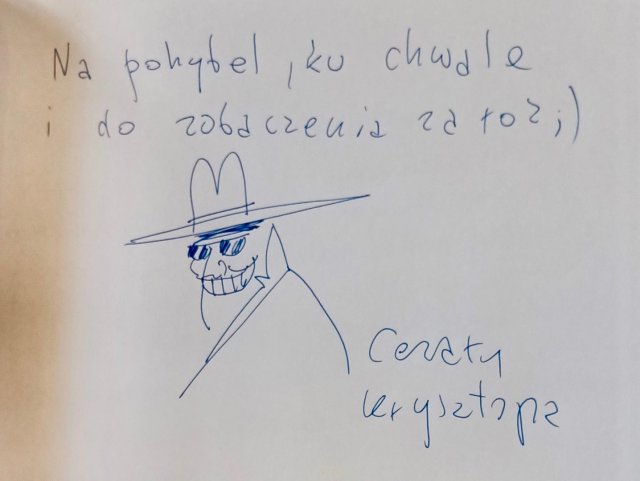 Na pohybel, ku chwale
i do zobaczenia za rok ;)
Cezary
Krysztopa